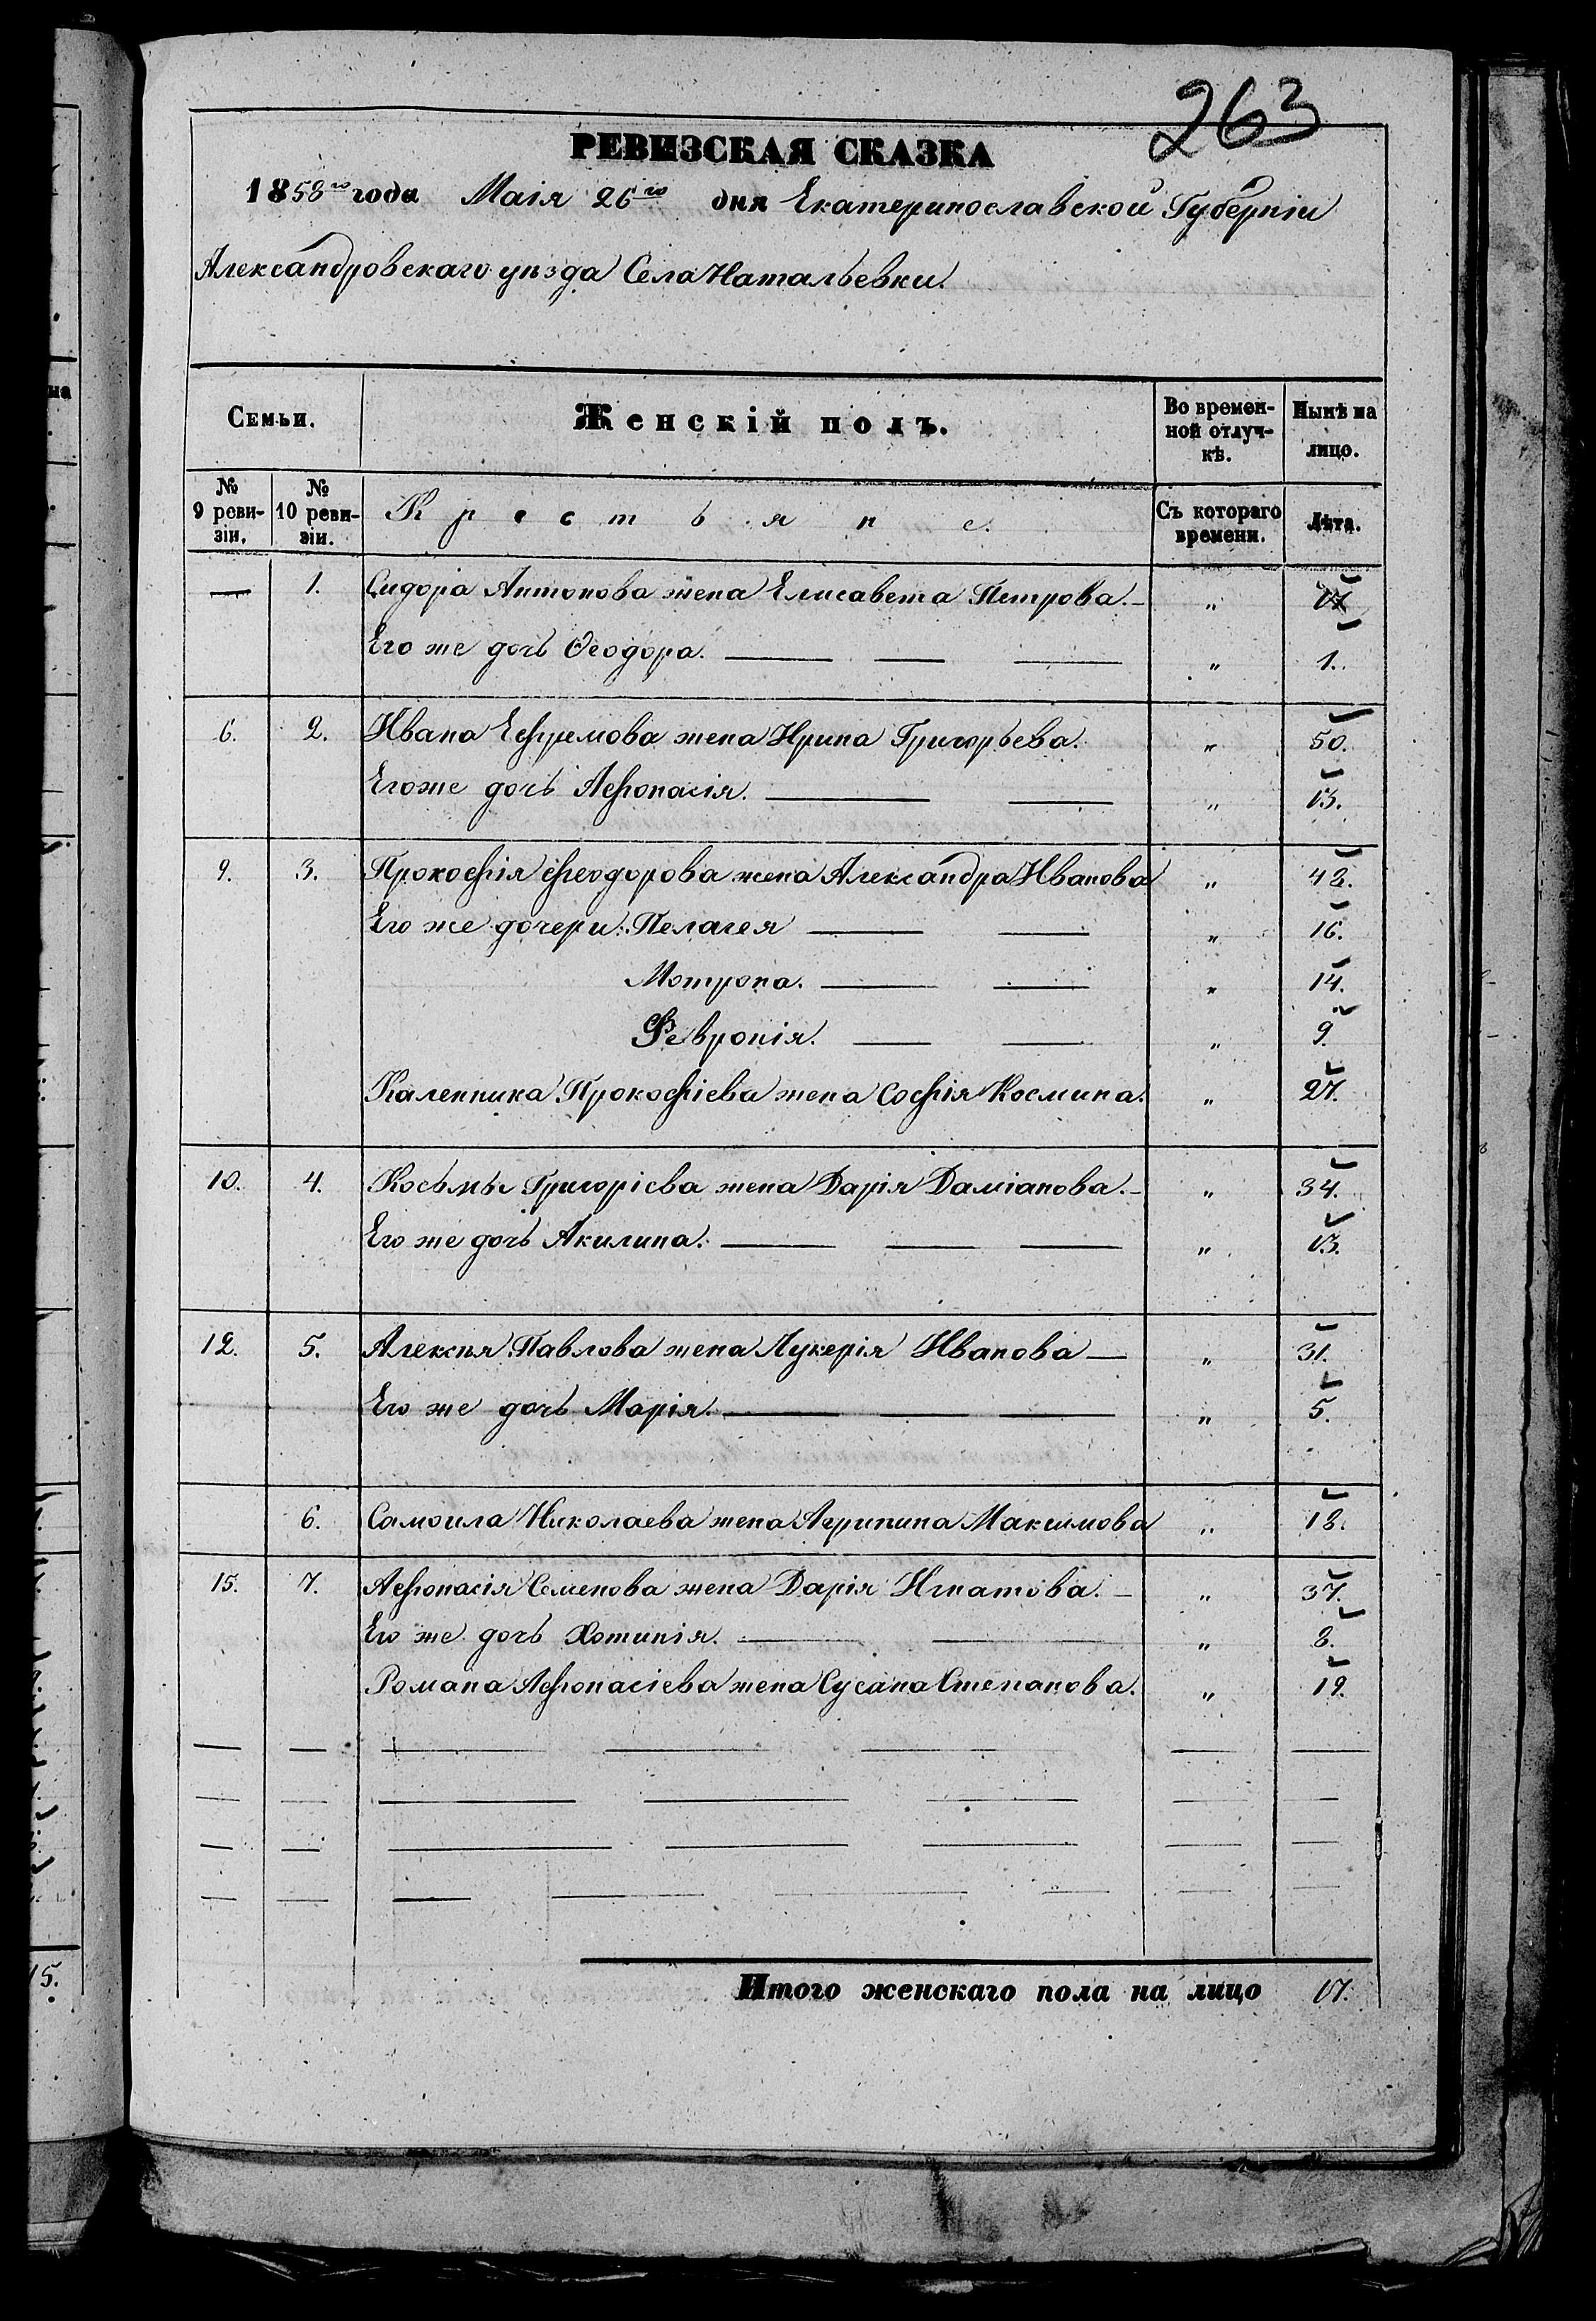 263
РЕВИЗСКАЯ СКАЗКА
1858го года Маія 26го дня Екатеринославской Губерніи
Александровскаго уѣзда Села Натальевки.
Семьи. Женскій полъ. Во времен-ной отлуч-кѣ. Нынѣ на лицо.
№ 9 реви-зіи. № 10 реви-зіи. Крестьяне. Съ котораго времени. Лѣта.
— 1. Сидора Антонова жена Елисавета Петрова. — „
Его же дочь Ѳеодора. — — — „ 1.
6. 2. Ивана Ефремова жена Ирина Григорьева. „ 50.
Егоже дочь Афонасія. — — „ 13.
9. 3. Прокофія Феодорова жена Александра Иванова „ 48.
Его же дочери: Пелагея — — „ 16.
Мотрона. — — „ 14.
Февронія. — — „ 9.
Каленника Прокофіева жена Софія Космина. „ 27.
10. 4. Косьмы Григоріева жена Дарія Даміанова. — „ 34.
Его же дочь Акилина. — — — „ 13.
12. 5. Алексѣя Павлова жена Лукерія Иванова — „ 31.
Его же дочь Марія. — — — „ 5.
6. Самоила Николаева жена Агрипина Максимова „ 18.
15. 7. Афонасія Семенова жена Дарія Игнатова. — „ 37.
Его же дочь Хотинія. — — „ 8.
Романа Афонасіева жена Сусана Степанова. „ 19.
Итого женскаго пола на лицо 17.
15.